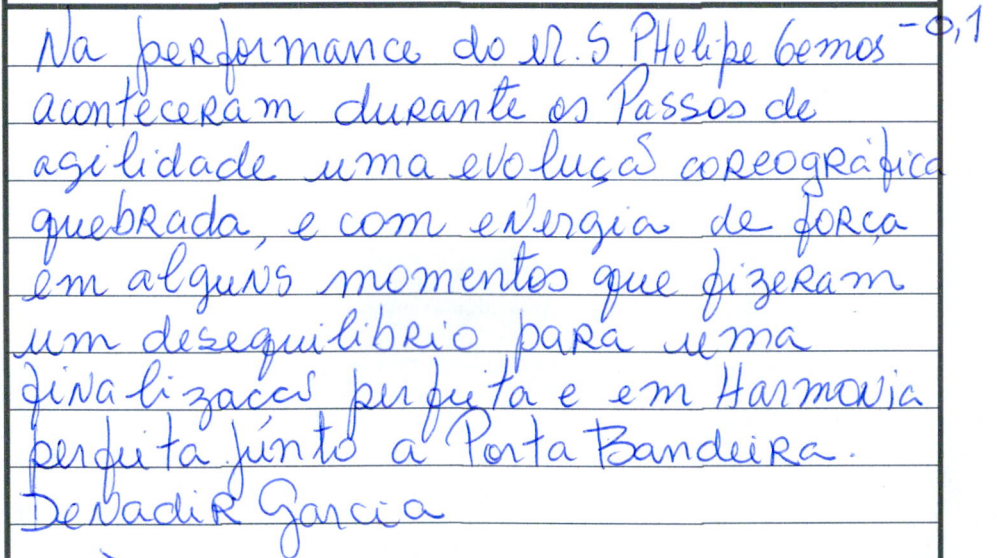 Na performance do M.S PHelipe Lemos -0,1
aconteceram durante os Passos de
agilidade uma evolução coreográfica
quebrada, e com energia de força
em alguns momentos que fizeram
um desequilibrio para uma
finalizacaõ perfeita e em Harmonia
perfeita júnto a Porta Bandeira.
Denadir Garcia